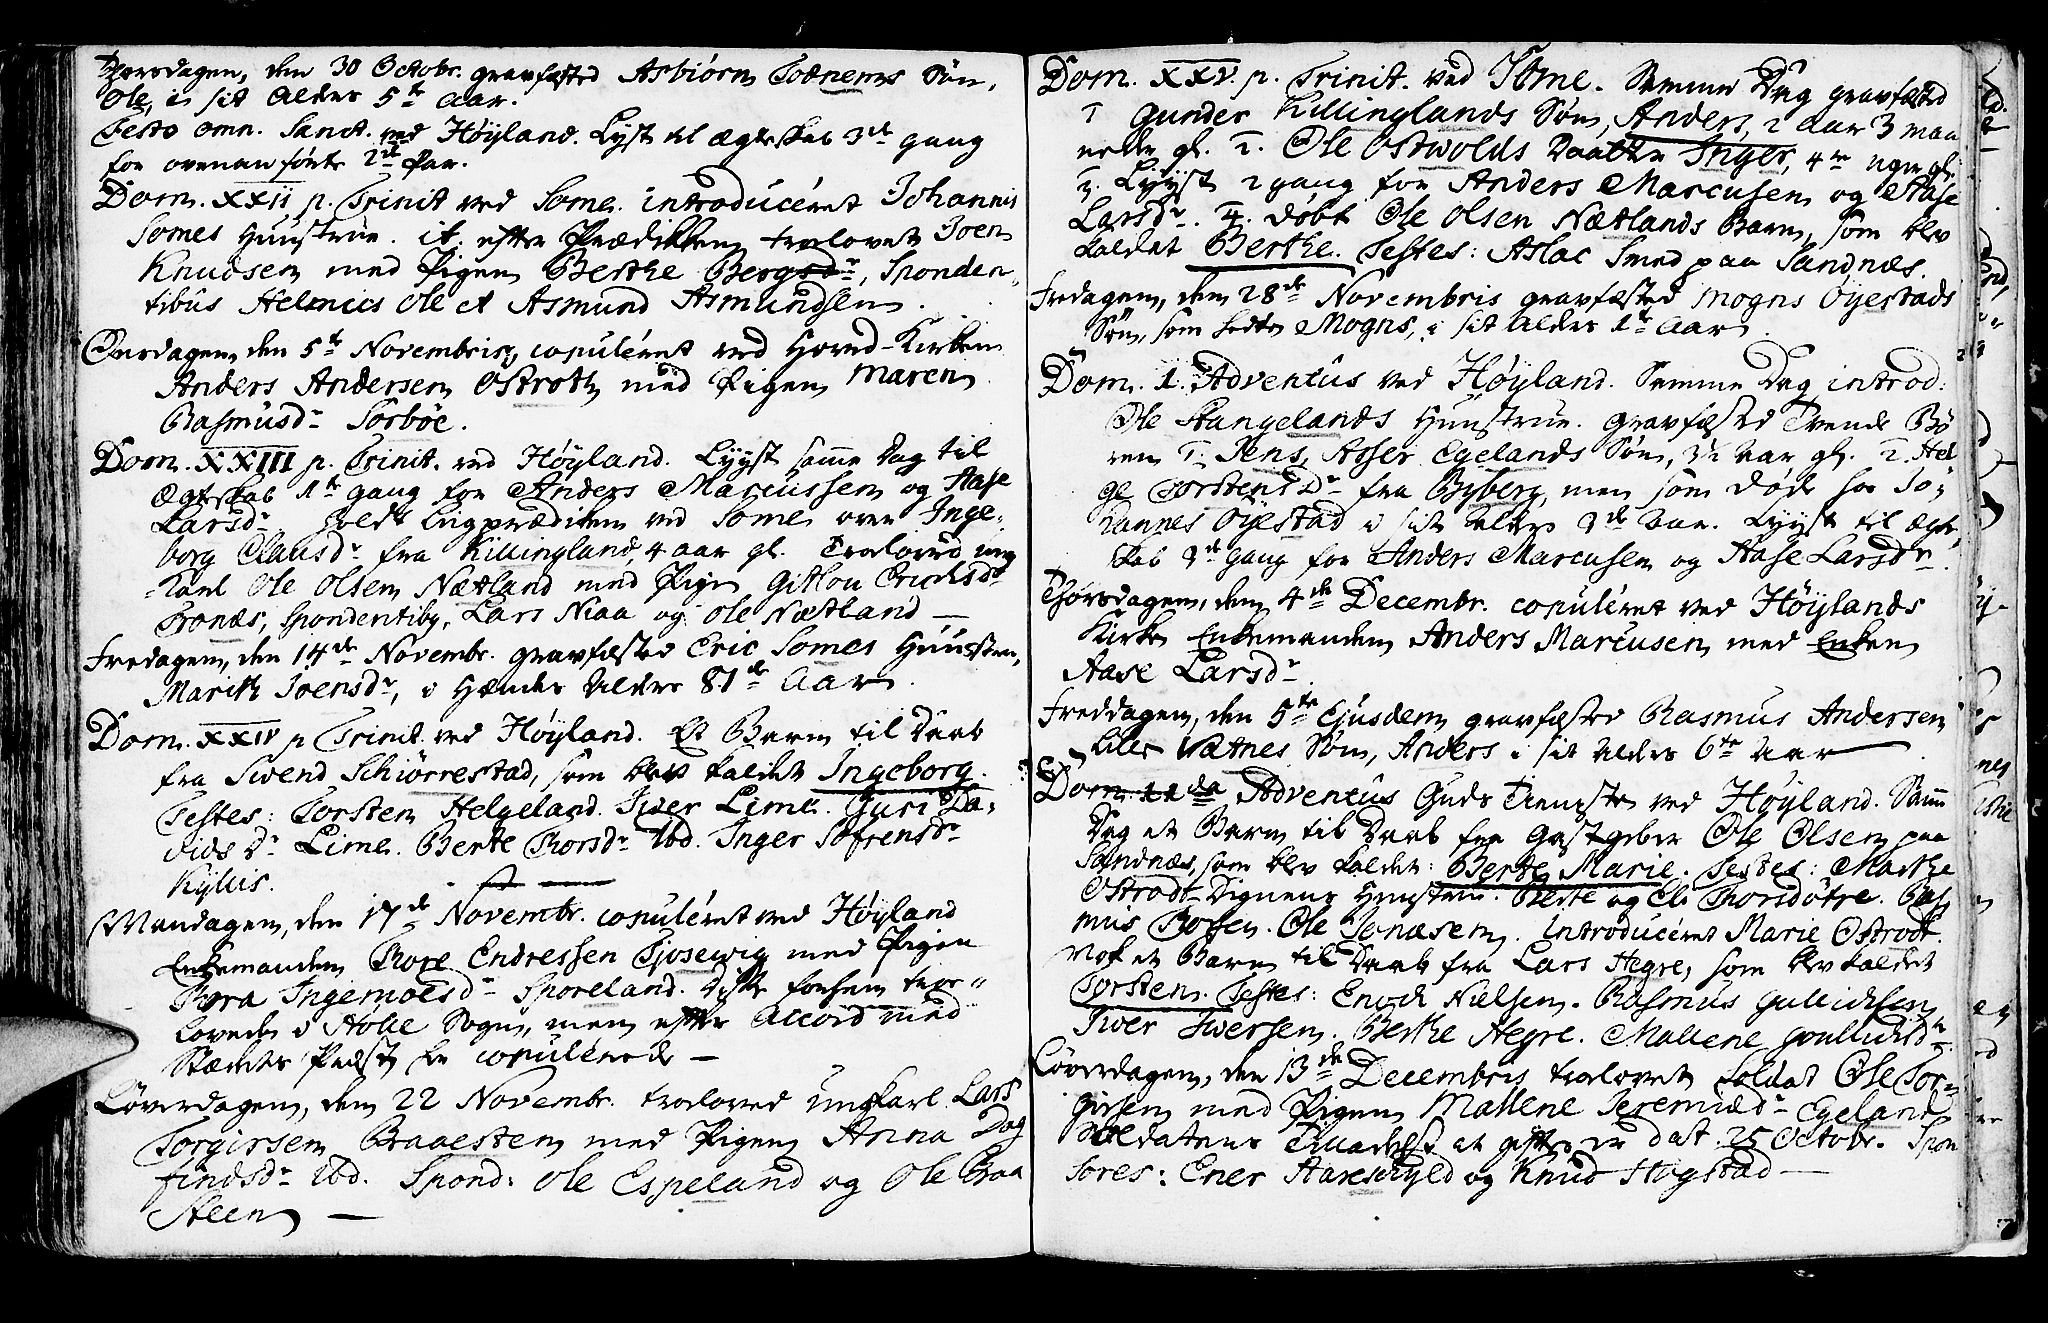 Thorsdagen, den 30 Octobr. gravfæsted Asbiörn Sven Søn,
Ole, i sit Alders 5te Aar.
Festo omn. Sanct. ved Höyland. Lyst til ægteskab 3de gang
for ovenanførte 2de Par.
Dom. XXII p. Trinit ved Somes. introduceret Johannis
Somes Huustrue. it. efter Prædikken trolovet Joen
Knudsen med Pigen Berthe Bergsdr, Sponden-
tibus Helmies Ole et Asmund Asmundsen.
Onsdagen den 5te Novembris, copuleret ved Hoved-Kirken
Anders Andersen Ostroth med Pigen Maren
Rasmusdr Sørbøe.
Dom. XXIII p. Trinit. ved Höyland. Lyyst samme Dag til
Ægteskab 1te gang for Anders Marcussen og Aase
Larsdr. Holdt Liigprædiken ved Somes over Inge-
borg Clausdr fra Killingland, 4 aar gl. Troloved ung
Karl Ole Olsen Nætland med Pige Gitlou Erichsdr
Tronæs, Spondentib, Lars Niaa og Ole Nætland —
Fredagen, den 14de Novembr. gravfæsted Eric Somes Huustru,
Marith Joensdr, i Hendes Alders 81de Aar.
Dom. XXIV p Trinit. ved Höyland. Et Barn til Daab
fra Svend Schiörrestad, som blev kaldet Ingeborg.
Testes: Torsten Helgeland. Iver Lime. Guri Da-
vids Dr Lime. Berte Thorsdr Ibd. Inger Sofrensdr
Kyllis.
Mandagen, den 17de Novembr. copuleret ved Höyland
Enkemanden Thore Endressen Tjosevig med Pigen
Thora Ingemoesdr Sporeland. Disse forhen tro-
lovede i Hole Sogn, men efter Accord med
Stædets Præst her copulerede —
Löverdagen, den 22 Novembr. troloved Ungkarl Lars
Torgirsen Braaesteen med Pigen Anna Dag
findsdr Ibd. Spond: Ole Espeland og Ole Braa
Steen —
Dom. XXV p. Trinit. ved Some. Samme Dag gravfæsted
1 Gunder Killinglands Søn, Anders, 2 aar 3 maa
neder gl. 2. Ole Ostwolds Daatter Inger, 4re uger gl.
3. Lyyst 2 gang for Anders Marcusen og Aase
Larsdr. 4. döbt Ole Olsen Nætlands Barn, som blev
kaldet Berthe. Testes: Aslac Smed paa Sandnæs.
Fredagen, den 28de Novembris gravfæsted Mogns Oyestads
Søn, som hedte Mogns, i sit Alders 1te Aar
Dom. 1. Adventus ved Höyland. Samme Dag introd.
Ole Stangelands Huustrue. gravfæsted Tvende Bö
ren 1. Jens, Asser Egelands Søn, 3½ Aar gl. 2. Hel
ge Torstens Dr fra Byberg, men som döde hos Jo-
hannes Oyestad i sit Alders 2de Aar. Lyyst til ægte
skab 3de gang for Anders Marcusen og Aase Larsdr.
Thörsdagen, den 4de Decembr. copuleret ved Höylands
Kirke Enkemanden Anders Marcusen med Enken
Aase Larsdr
Freddagen, den 5te Ejusdem gravfæsted Rasmus Andersen
Lille Vatnes Søn, Anders i sit Alders 6te Aar
Dom. 2da Adventus Guds Tieneste ved Höyland. Samme
Dag et Barn til Daab fra Gastgeber Ole Olsen paa
Sandnæs, som blev kaldet: Berte Marie. Testes: Marthe
Ostrodt Huustrue. Berte og Eli Thorsdøtre. Ras
mus Boysen. Ole Jonæsen. introduceret Marie Ostrodt.
Nok et Barn til Daab fra Lars Hegre, som blev kaldet
Torsten. Testes: Enoch Nielsen. Rasmus Gullichsen.
Iver Iversen. Berthe Hegre. Mallene Goullichsdr.
Löverdagen, den 13de Decembris trolovet Soldat Ole Tor-
girsen med Pigen Mallene Jeremiædr Egeland
Soldatens Tilladelse at gifte er dat. 25 Octobr. Spon
sores: Ener Hareswyld og Knud Hogstad —